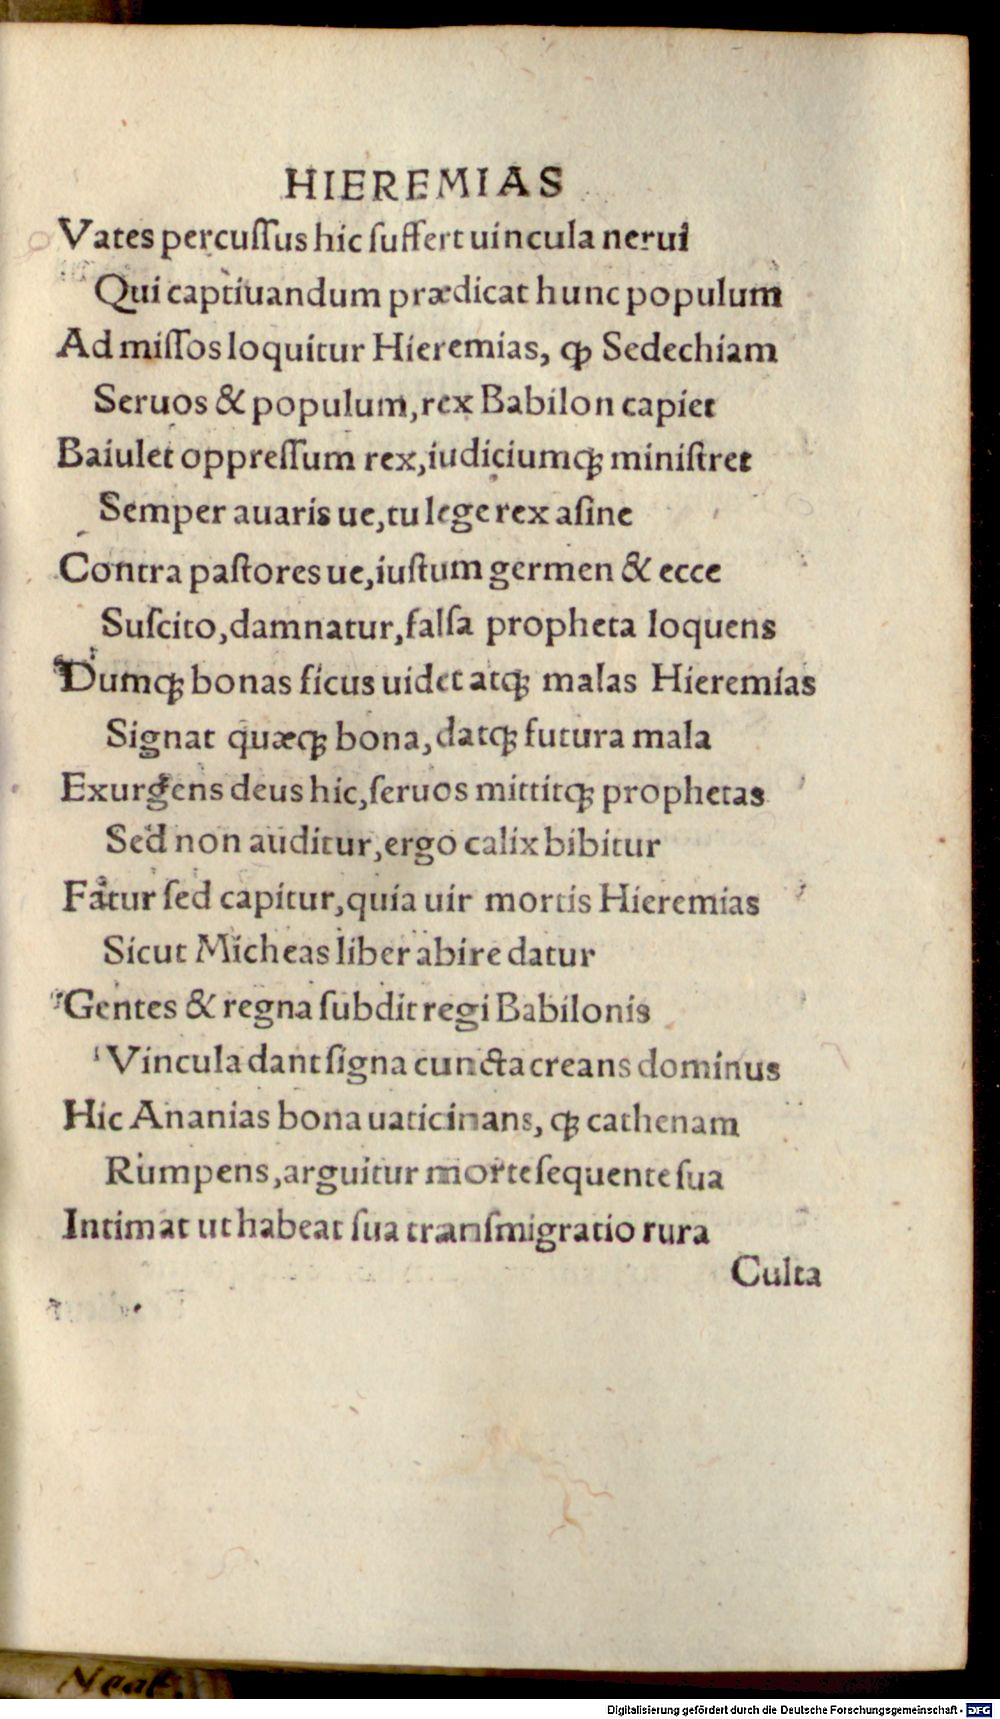 HIEREMIAS
Vates percuſſus hic ſuffert uincula nerui
Qui captiuandum prædicat hunc populum
Ad miſſos loquitur Hieremias, ꝙ Sedechiam
Seruos & populum,rex Babilon capiet
Baiulet oppreſſum rex,iudiciumꝗ miniſtret
Semper auaris ue,tu lege rex aſine
Contra paſtores ue,iuſtum germen & ecce
Suſcito,damnatur,falſa propheta loquens
Dumꝗ bonas ficus uidet atꝗ malas Hieremias
Signat quæꝗ bona,datꝗ futura mala
Exurgens deus hic,ſeruos mittitꝗ prophetas
Sed non auditur,ergo calix bibitur
Fatur ſed capitur,quia uir mortis Hieremias
Sicut Micheas liber abire datur
Gentes & regna ſubdit regi Babilonis
Vincula dant ſigna cuncta creans dominus
Hic Ananias bona uaticinans, ꝗ cathenam
Rumpens,arguitur morte ſequente ſua
Intimat ut habeat ſua tranſmigratio rura
Culta
Digitalisierung gefördert durch die Deutsche Forschungsgemeinschaft - DFG